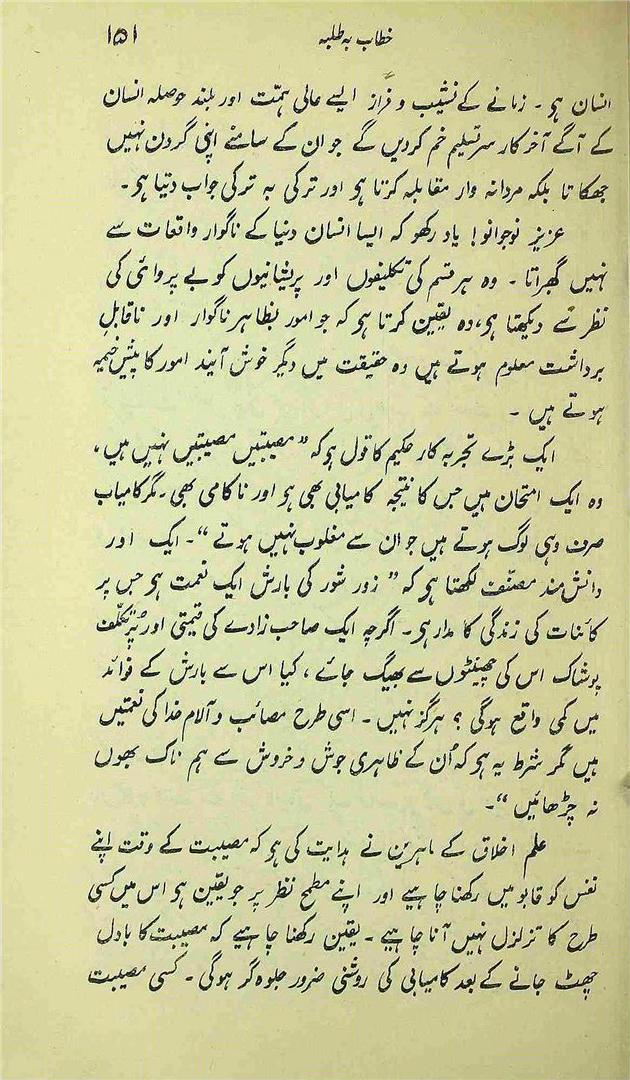 خطاب بہ طلبہ ۱۵۱
انسان ہو ۔ زمانے کے نشیب و فراز ایسے عالی ہمّت اور بلند حوصلہ انسان
کے آگے آخرکار سرتسلیم خم کردیں گے جو ان کے سامنے اپنی گردن نہیں
جھکاتا بلکہ مردانہ وار مقابلہ کرتا ہو اور ترکی بہ ترکی جواب دیتا ہو۔
عزیز نوجوانو! یاد رکھو کہ ایسا انسان دنیا کے ناگوار واقعات سے
نہیں گھبراتا ۔ وہ ہر قسم کی تکلیفوں اور پریشانیوں کو بے پروائی کی
نظر سے دیکھتا ہو، وہ یقین کرتا ہو کہ جو امور بظاہر ناگوار اور ناقابل
برداشت معلوم ہوتے ہیں وہ حقیقت میں دیگر خوش آیند امور کا پیش خیمہ
ہوتے ہیں ۔
ایک بڑے تجربہ کار حکیم کا قول ہو کہ ”مصیبتیں مصیبتیں نہیں ہیں،
وہ ایک امتحان ہیں جس کا نتیجہ کامیابی بھی ہو اور ناکامی بھی ۔ مگر کامیاب
صرف وہی لوگ ہوتے ہیں جو ان سے مغلوب نہیں ہوتے “۔ ایک اور
دانش مند مصنّف لکھتا ہو کہ ” زور شور کی بارش ایک نعمت ہو جس پر
کائنات کی زندگی کا مدار ہو ۔ اگرچہ ایک صاحب زادے کی قیمتی اور پُرتکلّف
پوشاک اس کی چھینٹوں سے بھیگ جائے ، کیا اس سے بارش کے فوائد
میں کمی واقع ہوگی ؟ ہرگز نہیں ۔ اسی طرح مصائب و آلام خدا کی نعمتیں
ہیں مگر شرط یہ ہو کہ اُن کے ظاہری جوش و خروش سے ہم ناک بھوں
نہ چڑھائیں “۔
علم اخلاق کے ماہرین نے ہدایت کی ہو کہ مصیبت کے وقت اپنے
نفس کو قابو میں رکھنا چاہیے اور اپنے مطمح نظر پر جو یقین ہو اس میں کسی
طرح کا تزلزل نہیں آنا چاہیے ۔ یقین رکھنا چاہیے کہ مصیبت کا بادل
چھٹ جانے کے بعد کامیابی کی روشنی ضرور جلوہ گر ہوگی ۔ کسی مصیبت